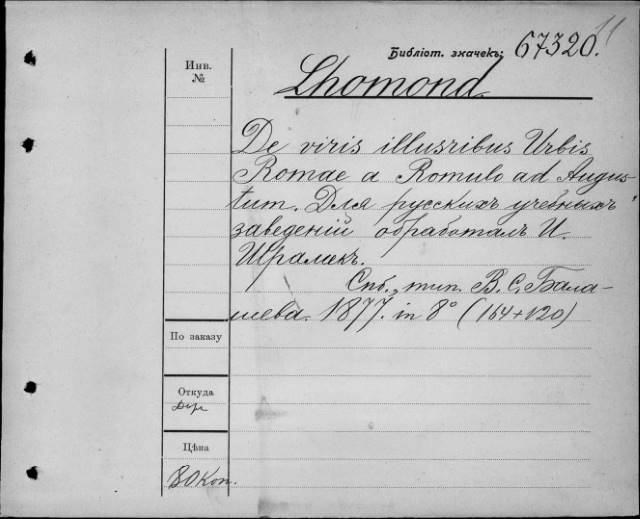 11
Библіот. значекъ: 67320.
Инв.
№
Lhomond.
De viris illusribus Urbis
Romae a Romulo ad Augus-
tum. Для русскихъ учебныхъ
заведеній обработалъ И.
Шрамекъ.
Спб., тип. В. С. Бала-
шева. 1877. in 8° (164+120)
По заказу
Откуда
Цѣна
80 коп.